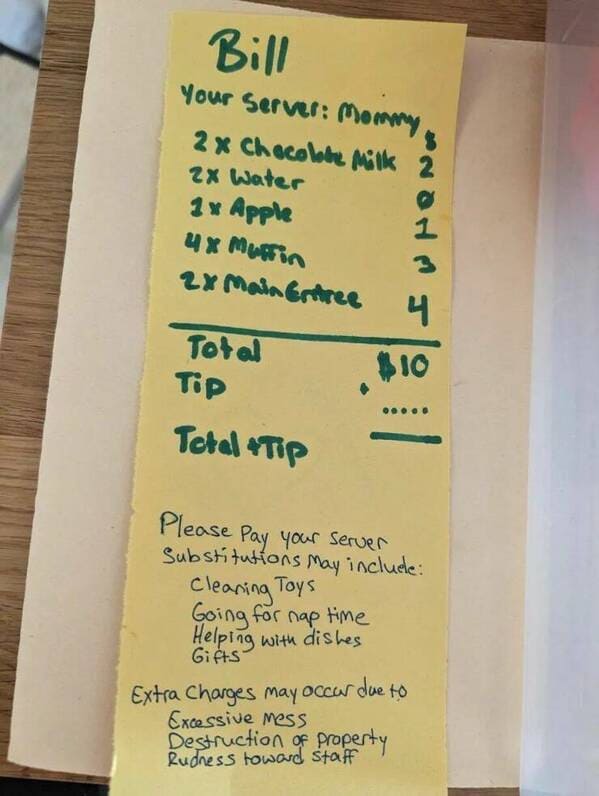 Bill
Your Server: Mommy
$
2 x Chocolate Milk 2
2x Water 0
1x Apple 1
4x Muffin 3
2x Main Entree 4
Total $10
Tip .....
Total + Tip
Please Pay your Server
Substitutions May include:
Cleaning Toys
Going for nap time
Helping with dishes
Gifts
Extra Charges may occur due to
Excessive Mess
Destruction of Property
Rudness toward Staff